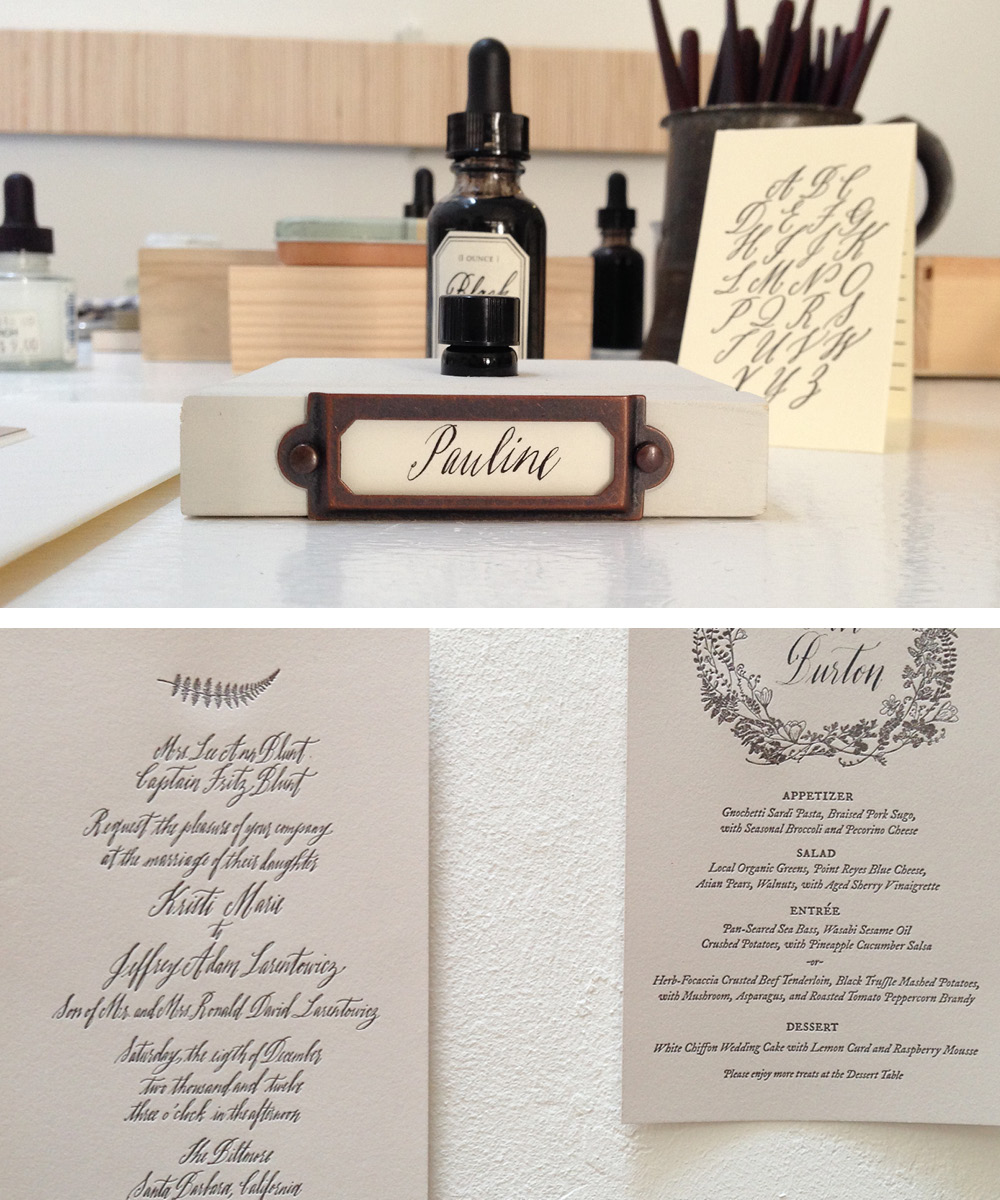 1 OUNCE
Black
A B C
D E F G
H I J K
L M N O
P Q R S
T U V W
X Y Z
Pauline
Mrs. Lee Ann Blunt
Captain Fritz Blunt
Request the pleasure of your company
at the marriage of their daughter
Kristi Marie
to
Jeffrey Adam Larentowicz
Son of Mr. and Mrs Ronald David Larentowicz
Saturday, the eigth of December
two thousand and twelve
three o'clock in the afternoon
The Biltmore
Santa Barbara, California
Burton
APPETIZER
Gnochetti Sardi Pasta, Braised Pork Sugo,
with Seasonal Broccoli and Pecorino Cheese
SALAD
Local Organic Greens, Point Reyes Blue Cheese,
Asian Pears, Walnuts, with Aged Sherry Vinaigrette
ENTRÉE
Pan-Seared Sea Bass, Wasabi Sesame Oil
Crushed Potatoes, with Pineapple Cucumber Salsa
-or-
Herb-Focaccia Crusted Beef Tenderloin, Black Truffle Mashed Potatoes,
with Mushroom, Asparagus, and Roasted Tomato Peppercorn Brandy
DESSERT
White Chiffon Wedding Cake with Lemon Curd and Raspberry Mousse
Please enjoy more treats at the Dessert Table